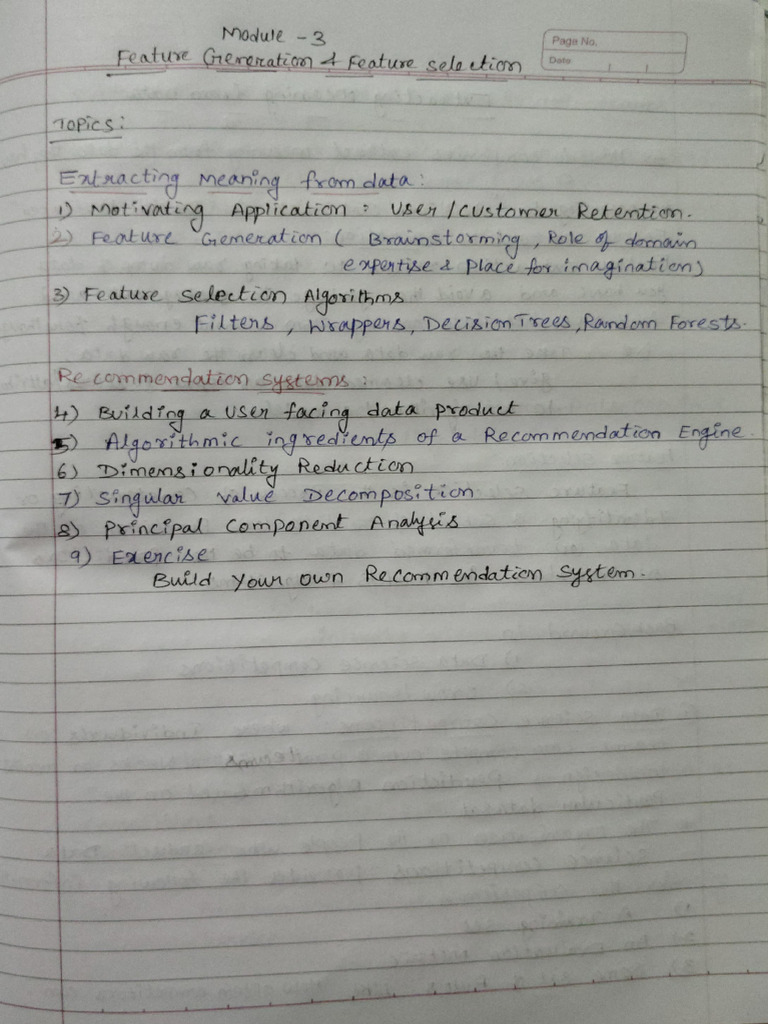 Module - 3
Feature Generation & Feature selection
Page No.
Date
Topics:
Extracting Meaning from data:
1) Motivating Application : User/Customer Retention.
2) Feature Generation ( Brainstorming, Role of domain
expertise & Place for imagination)
3) Feature selection Algorithms
Filters, Wrappers, Decision Trees, Random Forests.
Recommendation systems:
4) Building a User facing data product
5) Algorithmic ingredients of a Recommendation Engine.
6) Dimensionality Reduction
7) Singular value Decomposition
8) Principal Component Analysis
9) Exercise
Build Your own Recommendation System.